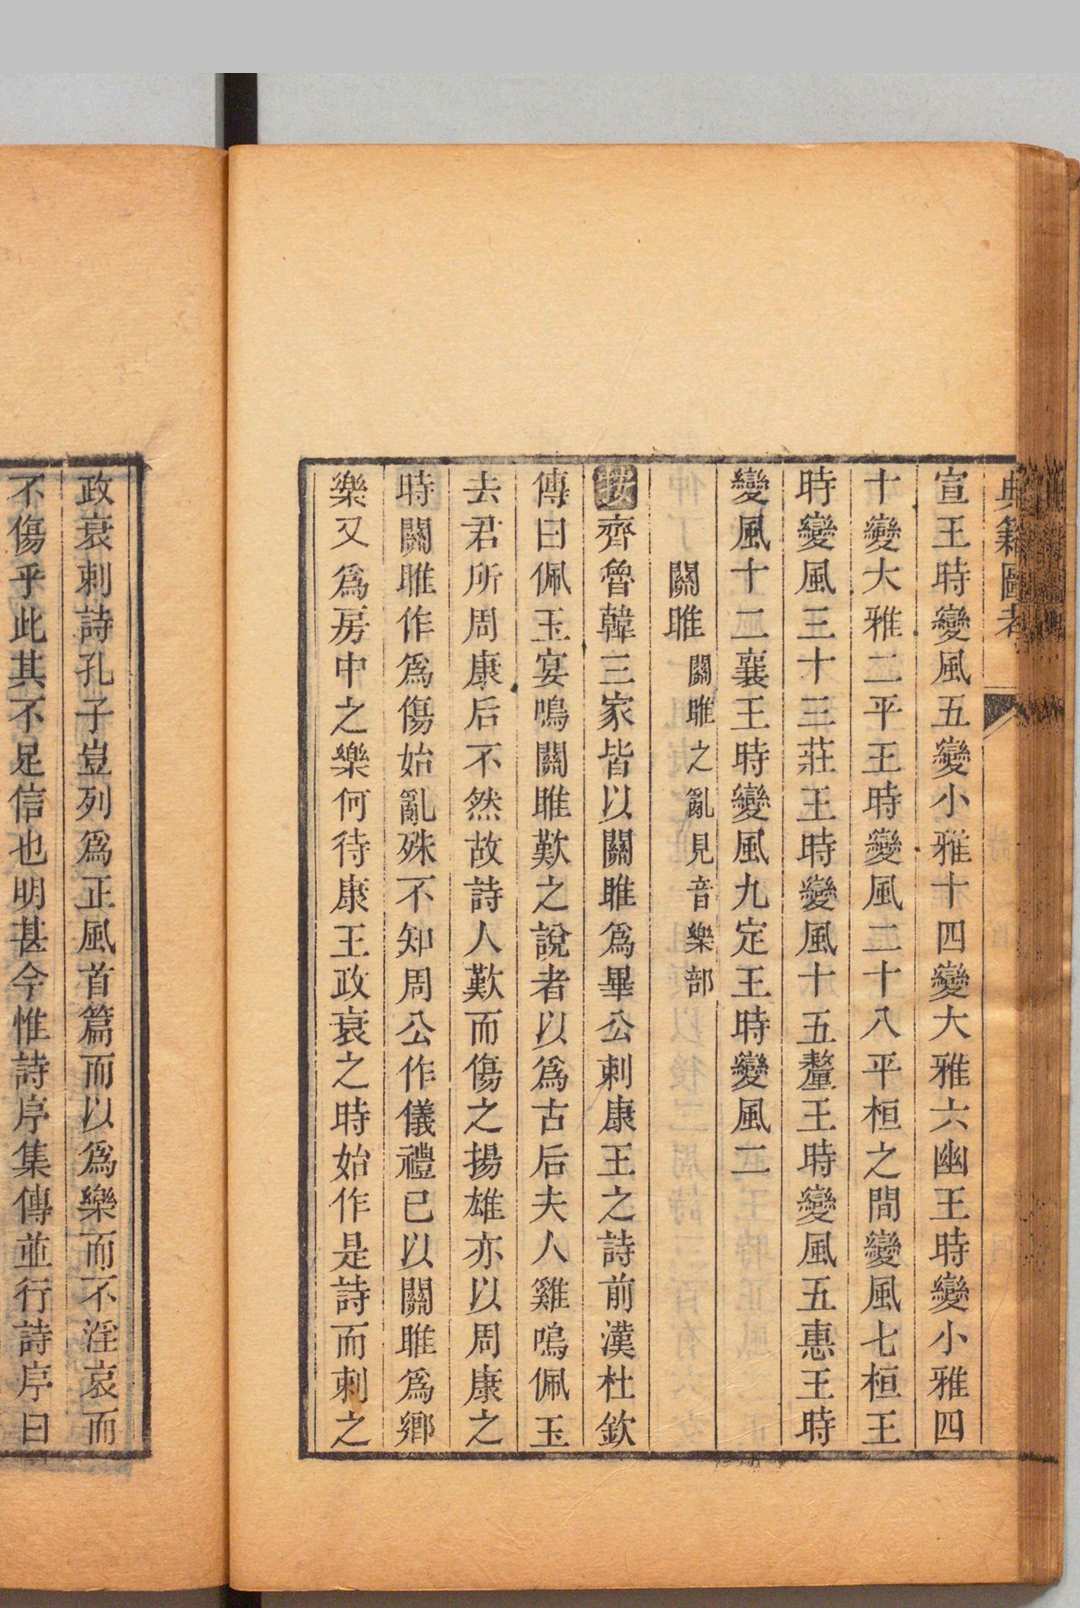 典籍圖考
宣王時變風五變小雅十四變大雅六幽王時變小雅四
十變大雅二平王時變風二十八平桓之間變風七桓王
時變風三十三莊王時變風十五釐王時變風五惠王時
變風十二襄王時變風九定王時變風二
關雎 關雎之亂見音樂部
按齊魯韓三家皆以關雎爲畢公刺康王之詩前漢杜欽
傳曰佩玉宴鳴關雎歎之說者以爲古后夫人雞鳴佩玉
去君所周康后不然故詩人歎而傷之揚雄亦以周康之
時關雎作爲傷始亂殊不知周公作儀禮已以關雎爲鄉
樂又爲房中之樂何待康王政衰之時始作是詩而刺之
政衰刺詩孔子豈列爲正風首篇而以爲樂而不淫哀而
不傷乎此其不足信也明甚今惟詩序集傳並行詩序曰